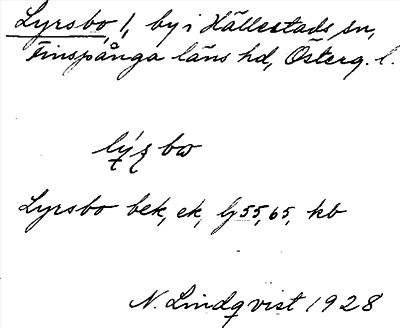 Lyrsbo, 1, by i Hällestads sn,
Finspånga läns hd, Österg. l.
Lyrsbo bek, ek, lj 55, 65, kb
N. Lindqvist 1928